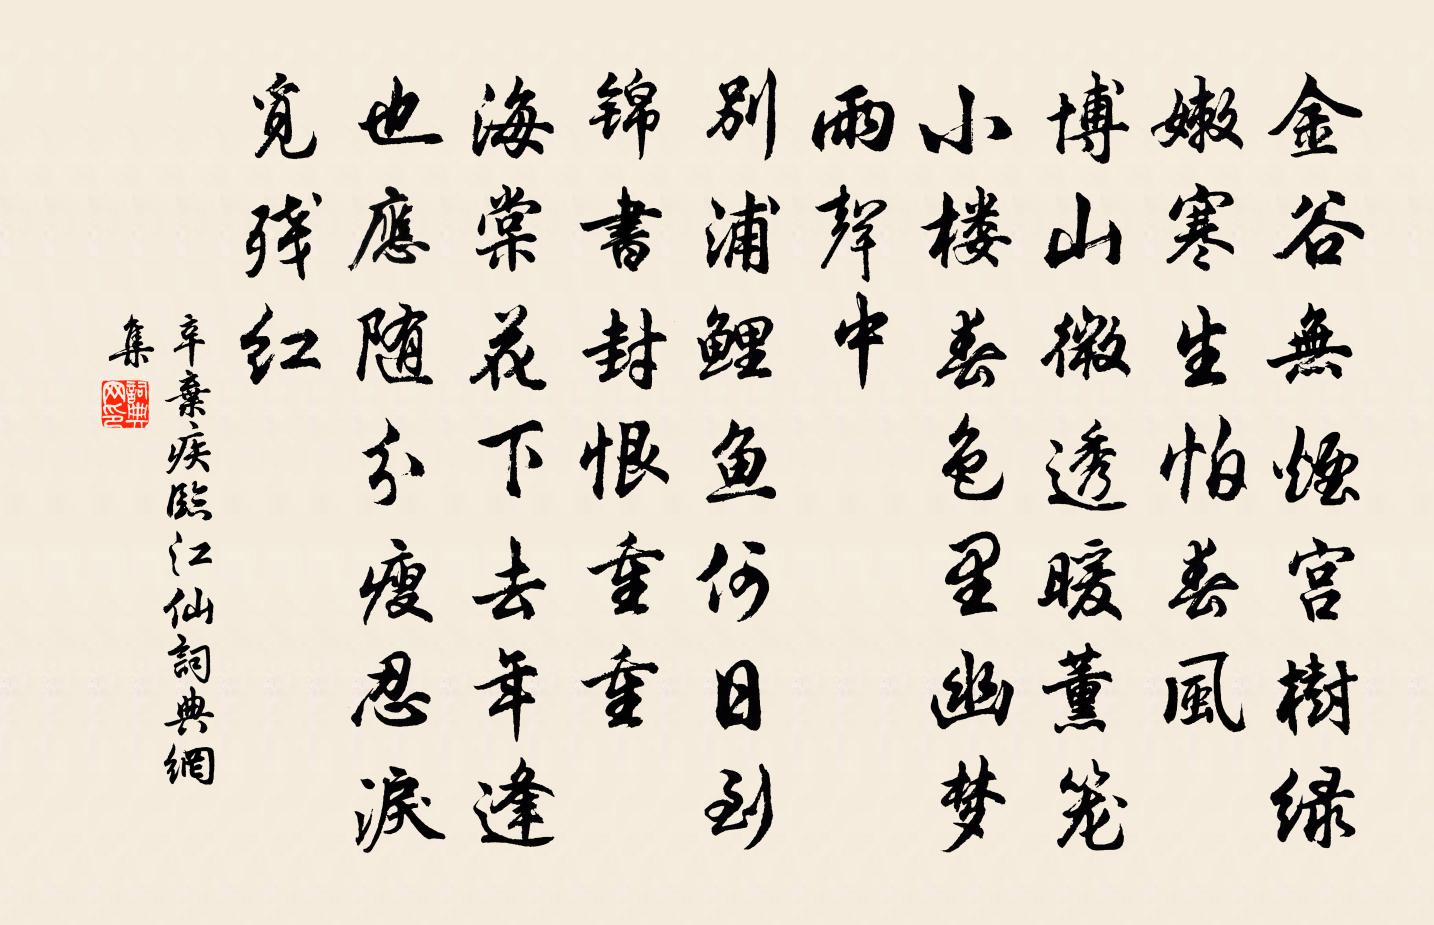 金谷無煙宮樹绿
嫩寒生怕春風
博山微透暖薰笼
小楼春色里幽梦
雨聲中
别浦鲤鱼何日到
锦書封恨重重
海棠花下去年逢
也應随分瘦忍淚
覓残红
辛棄疾臨江仙詞典網
集
詞典网印